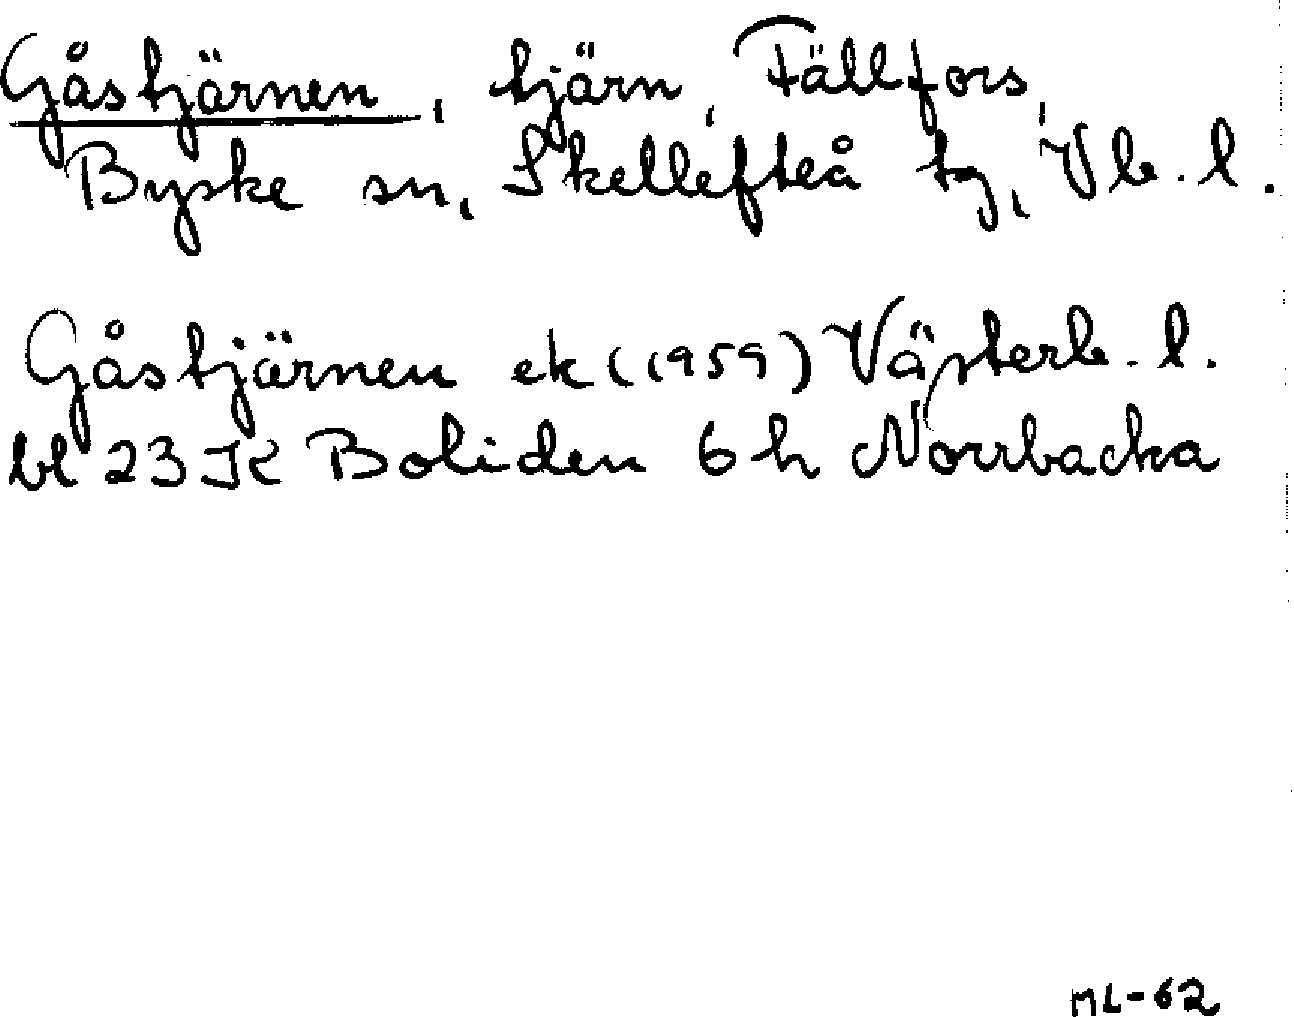 Gåstjärnen, tjärn, Fällfors,
Byske sn, Skellefteå tg, Vb. l.
Gåstjärnen ek (1959) Västerb. l.
bl 23 K Boliden 6 h Norrbacka
ML-62